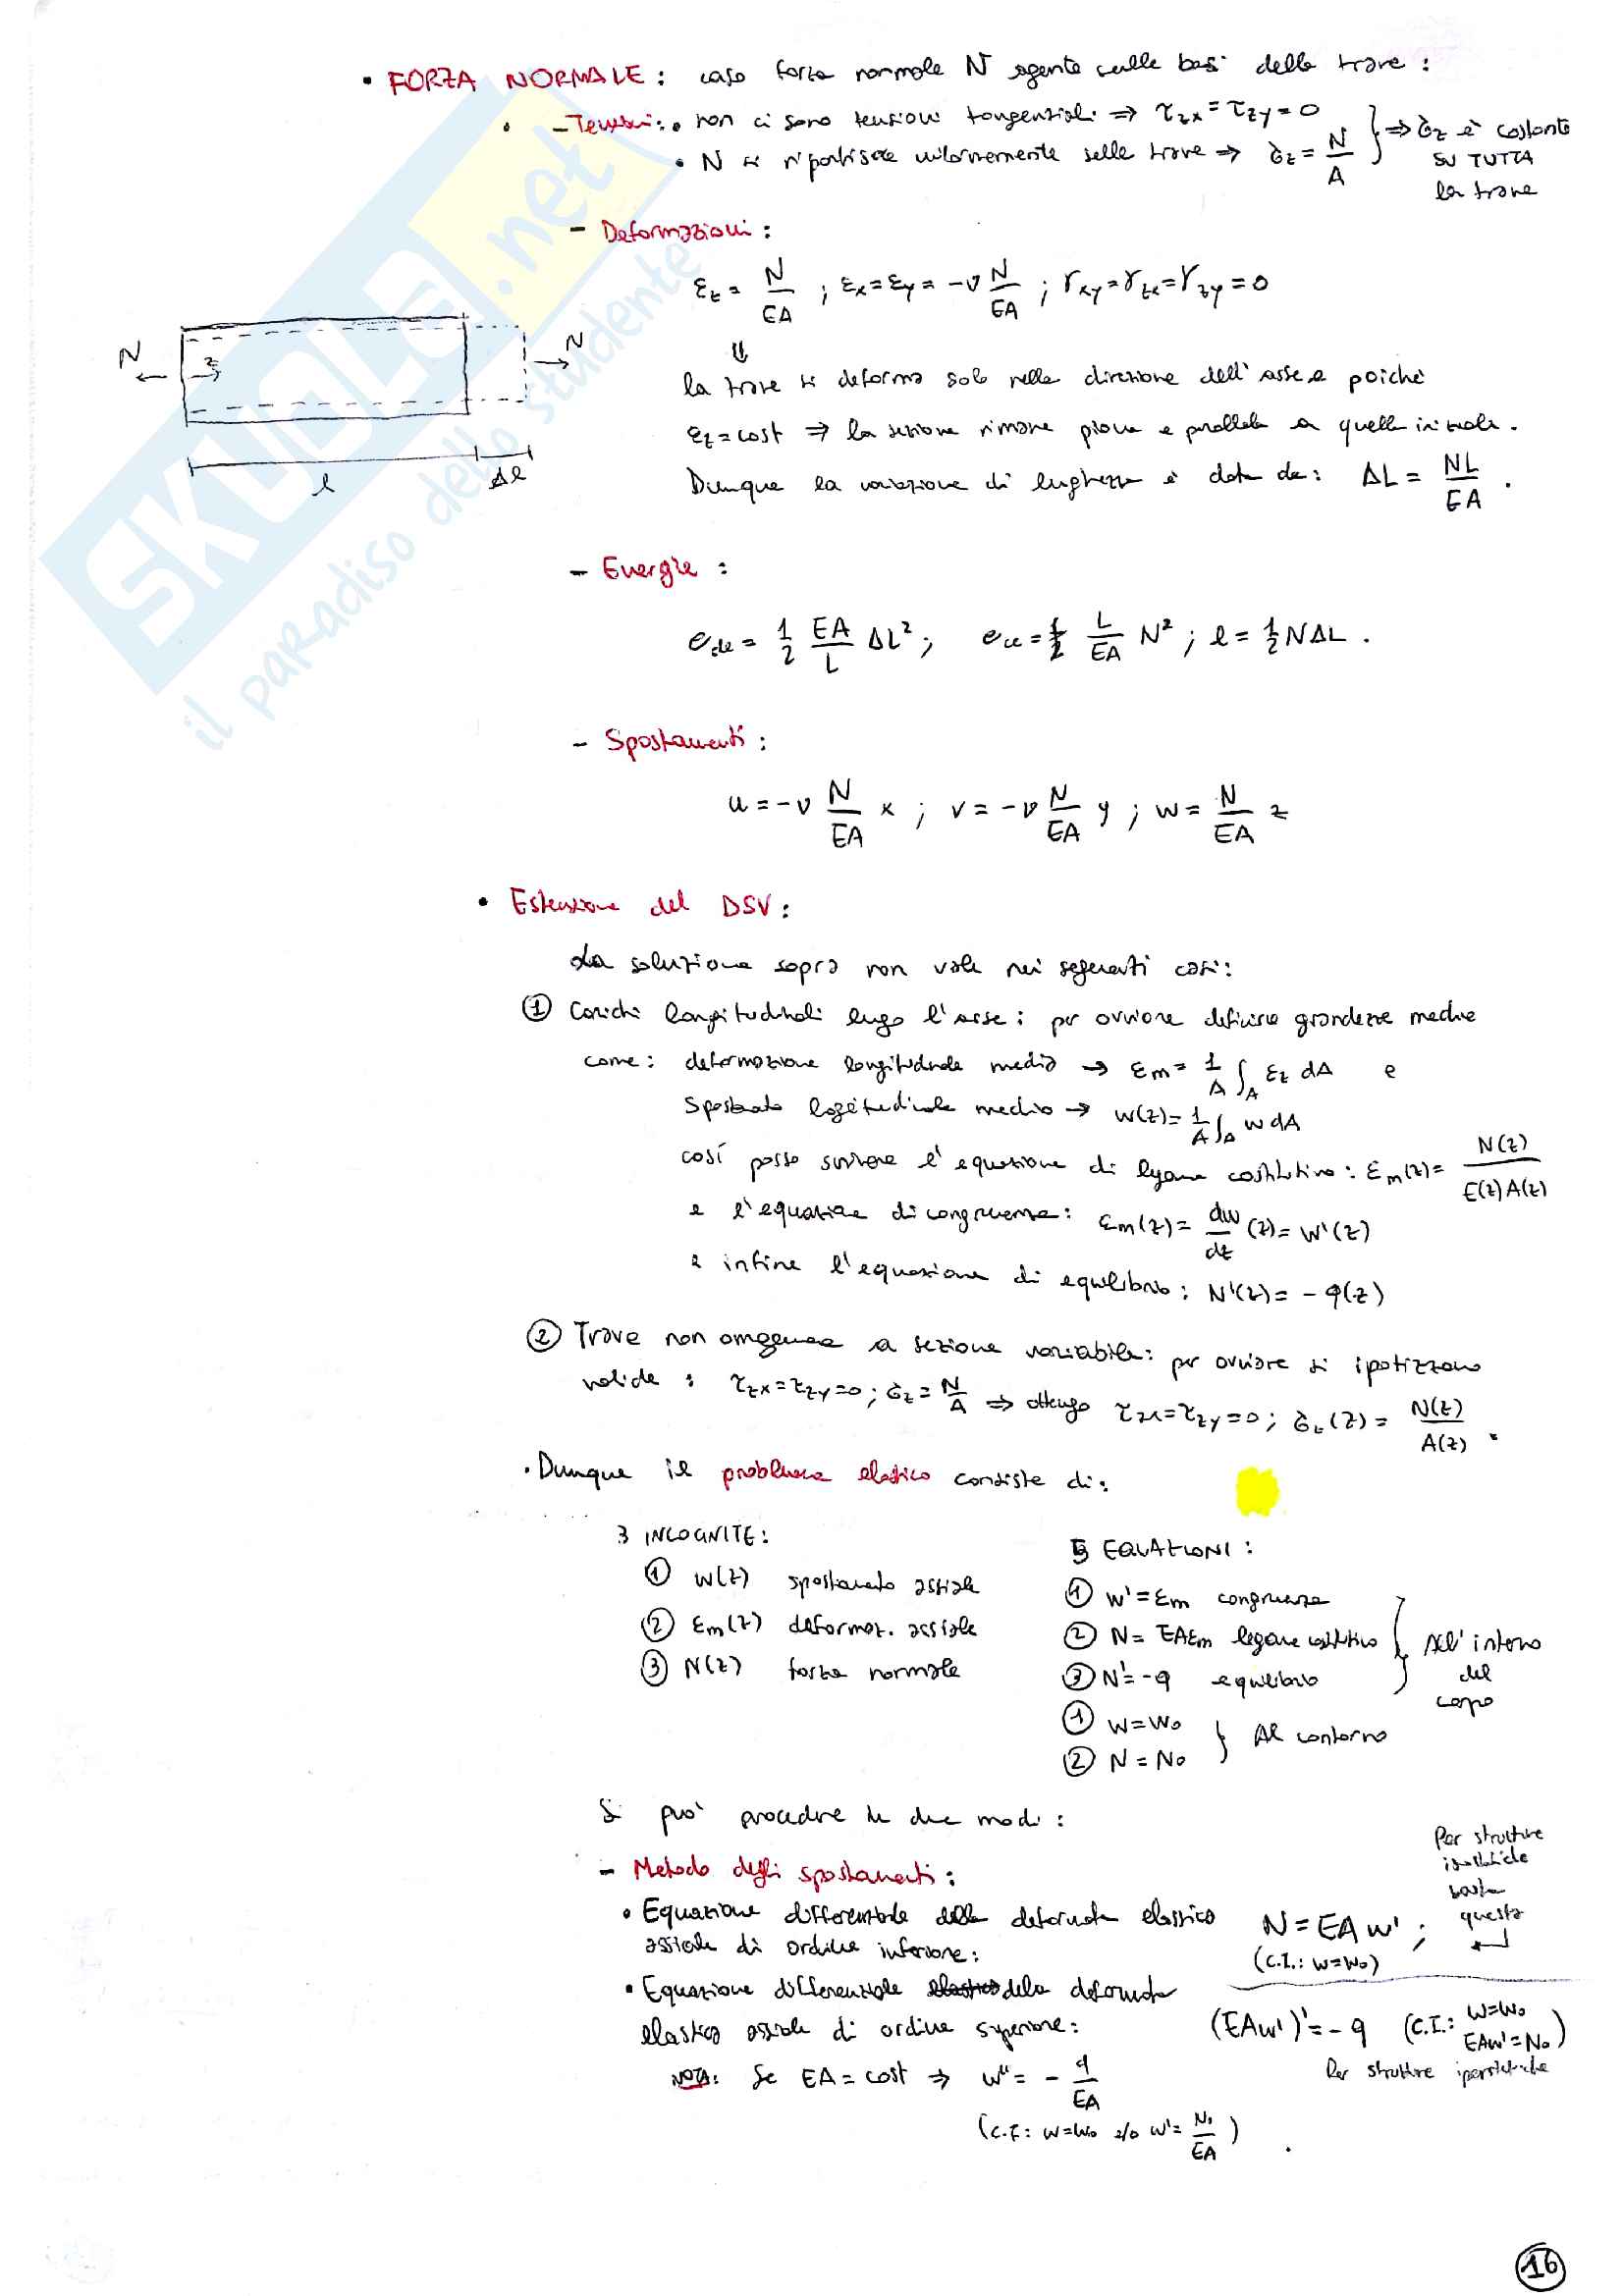 • FORZA NORMALE: caso forza normale N agente sulle basi della trave:
- Tensioni: • non ci sono tensioni tangenziali ⇒ τzx = τzy = 0
• N si ripartisce uniformemente sulla trave ⇒ σz = N/A } ⇒ σz è costante SU TUTTA la trave
- Deformazioni:
εz = N/EA ; εx = εy = -ν N/EA ; γxy = γzx = γzy = 0
⇓
la trave si deforma solo nella direzione dell'asse e poiché
εz = cost ⇒ la sezione rimane piana e parallela a quella iniziale.
Dunque la variazione di lunghezza è data da: ΔL = NL/EA .
N z N
l Δl
- Energie:
ede = 1/2 EA/L ΔL² ; ece = 1/2 L/EA N² ; l = 1/2 NΔL .
- Spostamenti:
u = -ν N/EA x ; v = -ν N/EA y ; w = N/EA z
• Estensione del DSV:
La soluzione sopra non vale nei seguenti casi:
① Carichi longitudinali lungo l'asse: per ovviare definisco grandezze medie
come: deformazione longitudinale media → εm = 1/A ∫A εz dA e
Spostamento longitudinale medio → w(z) = 1/A ∫A w dA
così posso scrivere l'equazione di legame costitutivo: εm(z) = N(z)/E(z)A(z)
e l'equazione di congruenza: εm(z) = dw/dz (z) = w'(z)
e infine l'equazione di equilibrio: N'(z) = - q(z)
② Trave non omogenea a sezione variabile: per ovviare si ipotizzano
valide: τzx = τzy = 0 ; σz = N/A ⇒ ottengo τzx = τzy = 0 ; σz(z) = N(z)/A(z) .
• Dunque il problema elastico consiste di:
3 INCOGNITE:
① w(z) spostamento assiale
② εm(z) deformaz. assiale
③ N(z) forza normale
5 EQUAZIONI:
① w' = εm congruenza
② N = EAεm legame costitutivo
③ N' = -q equilibrio
} All'interno del corpo
① w = w0
② N = N0
} Al contorno
Si può procedere in due modi:
- Metodo degli spostamenti:
• Equazione differenziale della deformata elastica
assiale di ordine inferiore:
N = EAw' ;
(C.I.: w = w0)
Per strutture isostatiche basta questa
• Equazione differenziale elastica della deformata
elastica assiale di ordine superiore:
(EAw')' = - q (C.I.: w = w0 EAw' = N0)
Per strutture iperstatiche
NOTA: Se EA = cost ⇒ w'' = - q/EA
(C.I: w = w0 e/o w' = N0/EA )
16
SKUOLA.net
il paradiso dello studente